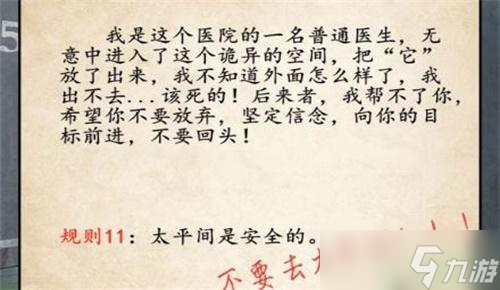 5
我是这个医院的一名普通医生，无
意中进入了这个诡异的空间，把“它”
放了出来，我不知道外面怎么样了，我
出不去...该死的！后来者，我帮不了你，
希望你不要放弃，坚定信念，向你的目
标前进，不要回头！
规则11：太平间是安全的。
不要去
九游